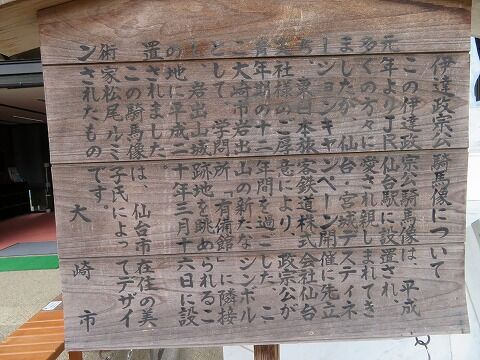 伊達政宗公騎馬像について
この伊達政宗公騎馬像は、平成
元年よりJR仙台駅に設置され、
多くの方々に愛され親しまれてき
ましたが、仙台・宮城デスティネ
ーションキャンペーン開催に先立
ち、東日本旅客鉄道株式会社仙台
支社様のご厚意により、政宗公が
青年期の十二年間を過ごした、こ
こ大崎市岩出山の新たなシンボル
として、学問所「有備館」に隣接
し、岩出山城跡地を眺められるこ
の地に平成二十年三月十六日に設
置されました。
この騎馬像は、仙台市在住の美
術家松尾ルミ子氏によってデザイ
ンされたものです。
大崎市